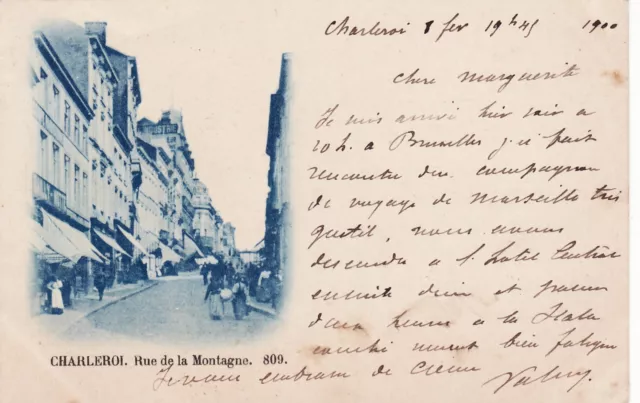 Charleroi 8 fev 19h45 1900
Chere Marguerite
Je suis arrivé hier soir a
10h. a Bruxelles j'ai fait
rencontre d'un compagnon
de voyage de Marseille très
gentil, nous avons
descendu a l. Hotel Central
ensuite diné et passer
deux heures a la Scala
bien fatigué
Je vous embrasse de Coeur
INDUSTRIE
CHARLEROI. Rue de la Montagne. 809.